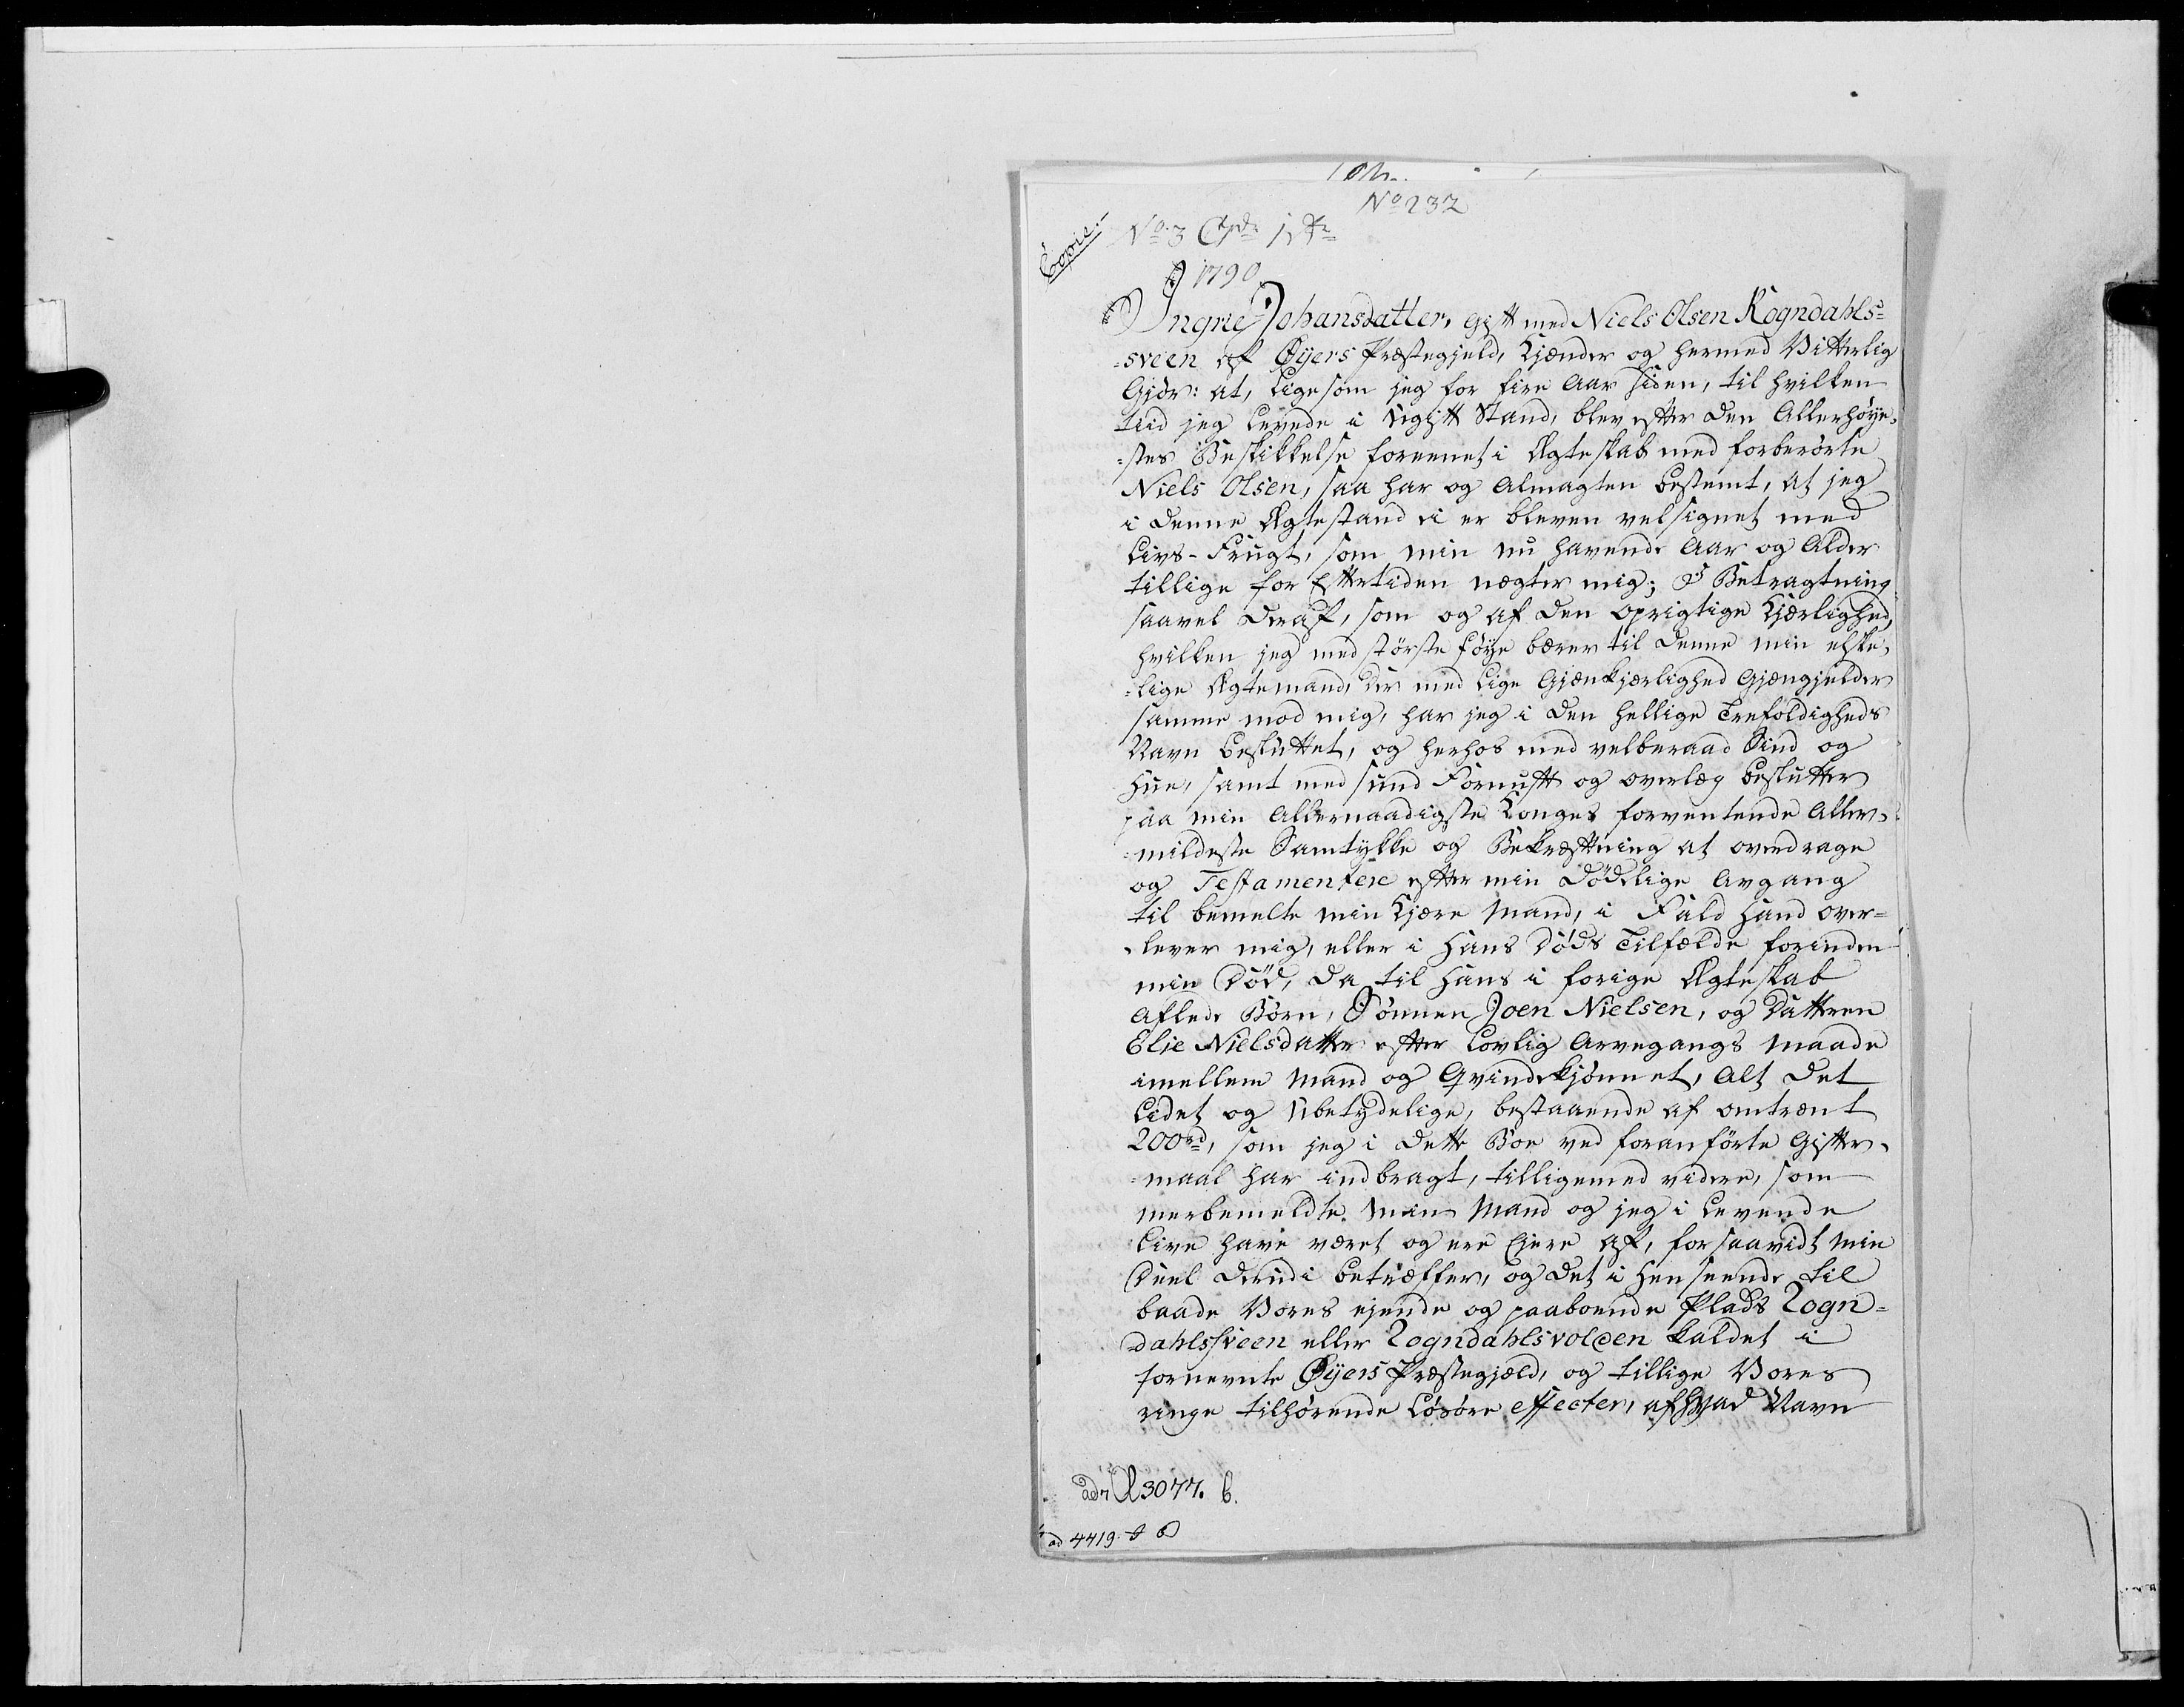 No 232
Copie:
No 3
1790
Ingrie Johansdatter, gift med Niels Olsen Rogndahls=
=sveen af Øyers Præstegjeld, Kjender og hermed Vitterlig
Gjör: at, ligesom jeg for fire Aar siden, til hvilken
tiid jeg levede i ugift Stand, blev efter den Allerhöye=
=stes Beskikkelse foreenet i Ægteskab med forberörte
Niels Olsen, saa har og Almagten bestemt, at jeg
i denne Ægtestand ei er bleven velsignet med
Livs-Frugt, som min nu havende Aar og Alder
tillige for Eftertiden nægter mig; I Betragtning
saavel deraf, som og af den oprigtige Kjærlighed,
hvilken jeg med störste föye bærer til denne min elske=
=lige Ægtemand, der med lige Gjenkjærlighed Gjengjelder
samme mod mig, har jeg i den hellige Trefoldigheds
Navn besluttet, og herhos med velberaad Sind og
Hue, samt med sund Fornuft og overlæg beslutter
paa min Allernaadigste Konges forventende Aller=
=mildeste Samtykke og Bekræftning at overdrage
og Testamentere efter min dödelige Avgang
til bemelte min Kjære Mand, i Fald hand over=
=lever mig, eller i hans Döds Tilfælde forinden
min Död, da til hans i forige Ægteskab
aflede Börn, Sönnen Joen Nielsen, og Datteren
Elie Nielsdatter efter Lovlig Arvegangs Maade
imellem Mand og Qvindekjönnet, alt det
lidet og Ubetydelige, bestaaende af omtrent
200rd, som jeg i dette Boe ved foranförte Gifter=
=maal har indbragt, tilligemed videre, som
merbemeldte min Mand og jeg i levende
Live have været og ere Ejere af, forsaavidt min
Deel derudi betræffer, og det i Henseende til
baade Vores ejende og paaboende Plads Rogn=
dahlssveen eller Rogndahlsvolden kaldet i
fornevnte Øyers Præstegjæld, og tillige Vores
ringe tilhörende Lösöre effecter, af hvad Navn
3077. b.
ad 4419